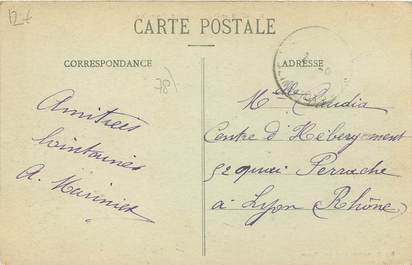 12+
CARTE POSTALE
CORRESPONDANCE
ADRESSE
78
Amitiés
lointaines
A. Meunier
Melle Claudia
Centre d'Hébergement
52 quai Perrache
à Lyon (Rhône)